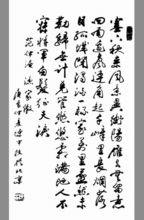 塞下秋来風景異衡陽雁去無留意
四面邊聲連角起千嶂裏長煙落
日孤城閉濁酒一杯家萬里燕然未
勒歸無計羌管悠悠霜滿地人不
寐將軍白髮征夫淚
范仲淹漁家傲